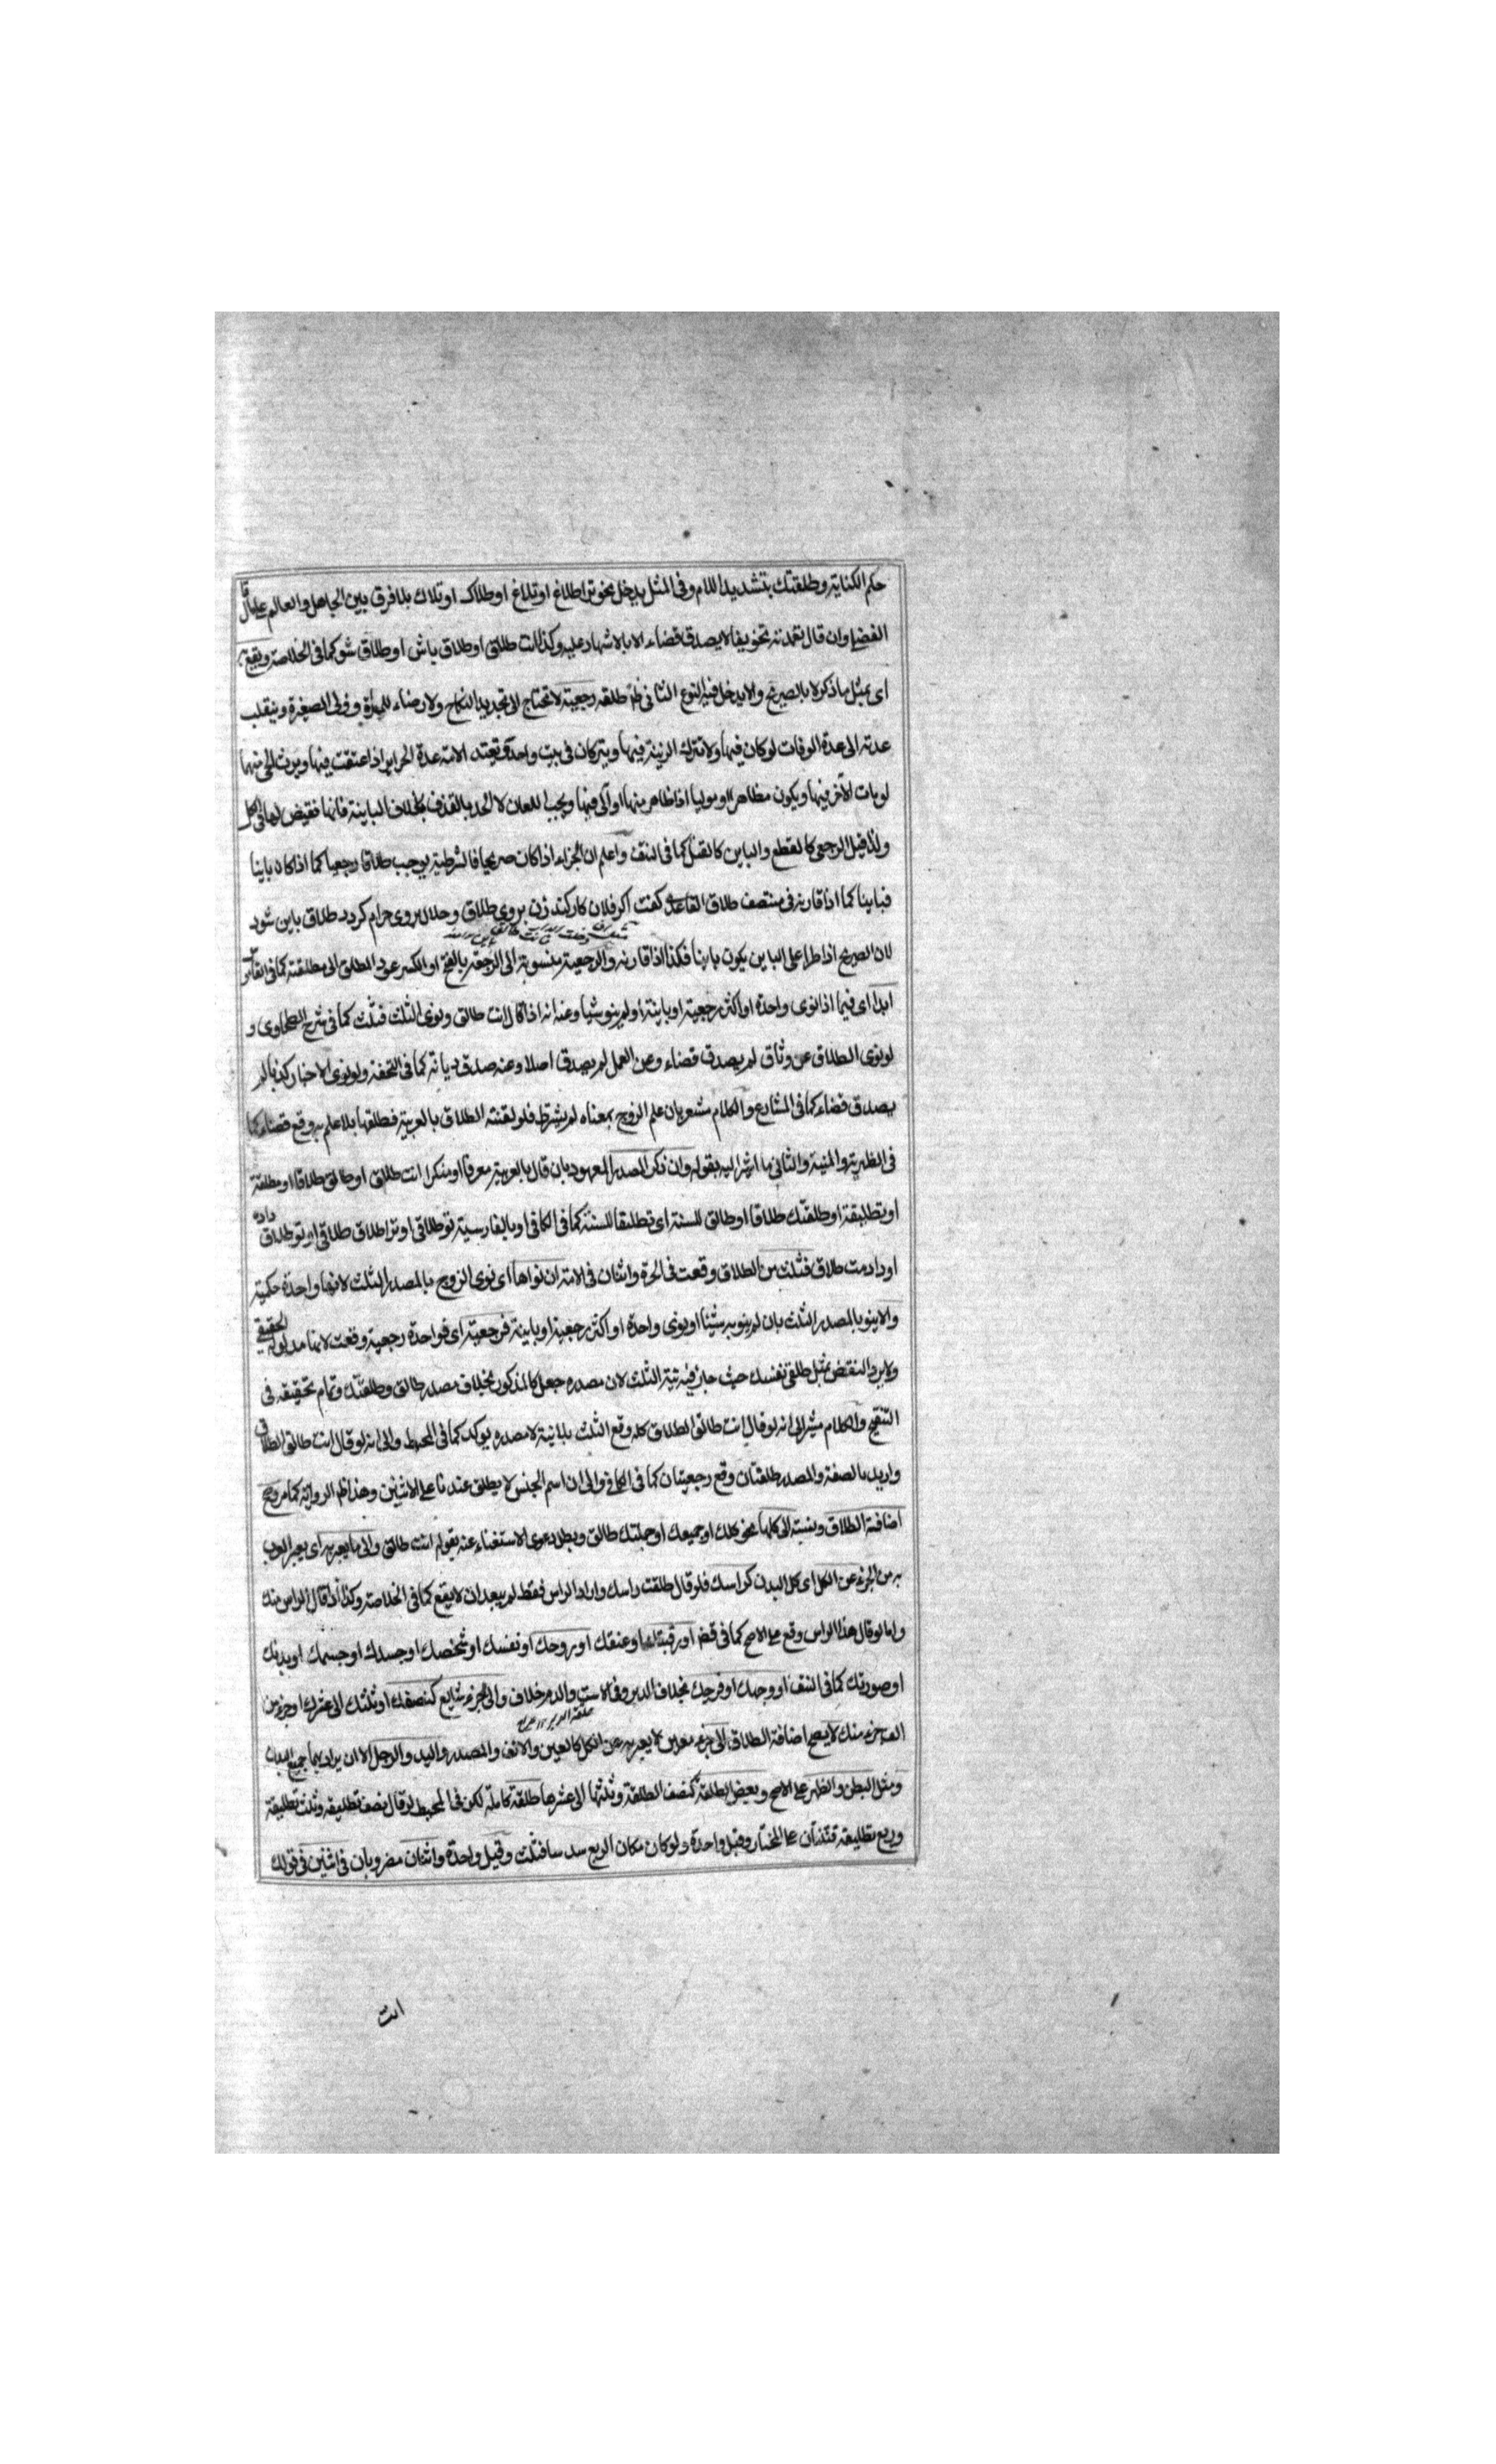 حكم الكناية وطلقتك بتشديد اللام وفي المثل يدخل نحو ترا طلاغ او تلاغ او طلاك او تلاك بلا فرق بين الجاهل والعالم على ما قال
الفضلي وان قال تعمدته تخويفا لا يصدق قضاء الا بالاشهاد عليه وكذا انت طلاق او طلاق باش او طلاق شو كما في الخلاصة ويقع به
اى بمثل ما ذكر لا بالصريح والا يدخل فيه النوع الثاني طلقه رجعية لا تحتاج الى تجديد النكاح ولا رضاء للمراة و ولى الصغيرة وينقلب
عدته الى عدة الوفات لو كان فيها ولا تترك الزينة فيها ويتركان في بيت واحد وتعتد الامة عدة الحراير اذا عتقت فيها ويرث الحى منهما
لو مات الآخر فيها ويكون مظاهرا وموليا اذا ظاهر منها او آلى فيها ويجب اللعان لا الحد بالقذف بخلاف الباينة فانها نقيض لها في الكل
ولذا قيل الرجعى كالقطع والباين كالقتل كما في النتف واعلم ان الجزاء اذا كان صريحا فالشرطية يوجب طلاقا رجعيا كما اذا كان باينا
فباينا كما اذا قارنه في منتصف طلاق القاعدى كفت اكر فلان كار كند زن بروى طلاق وحلال بروى حرام كردد طلاق باين شود
لان الصريح اذا طرا على الباين يكون باينا فكذا اذا قارنه والرجعية منسوبة الى الرجعة بالفتح او الكسر عود المطلق الى مطلقته كما في القاموس
ابدا اى فيما اذا نوى واحدة او اكثر رجعية او باينة او لم ينو شيا وعنه انه اذا قال انت طالق ونوى الثلث فثلث كما في شرح الطحاوى و
لو نوى الطلاق عن وثاق لم يصدق قضاء وعن العمل لم يصدق اصلا وعنه صدق ديانة كما في التحفة ولو نوى الاخبار كذبا لم
يصدق قضاء كما في المشارع والكلام مشعر بان علم الزوج بمعناه لم يشترط فلو لقنته الطلاق بالعربية فطلقها بلا علم به وقع قضاء كما
في الظهيرية والمنية والثاني ما اشار اليه بقوله وان ذكر المصدر المعهود بان قال بالعربية معرفا او منكرا انت طلاق او طالق طلاقا او مطلقة
او تطليقة او طلقتك طلاقا او طالق للسنة اى تطليقا للسنة كما في الكافي او بالفارسية تو طلاقى او ترا طلاق طلاقى او تو طلاق داده
او دادمت طلاق فثلث من الطلاق وقعت في الحرة واثنان في الامة ان نواها اى نوى الزوج بالمصدر الثلث لانها واحدة حكمية
والا ينو بالمصدر الثلث بان لم ينو به شيئا او نوى واحدة او اكثر رجعية او باينة فرجعية اى فواحدة رجعية وقعت لانها مدلوله الحقيقي
ولا يرد النقض بمثل طلقى نفسك حيث جاز فيه نية الثلث لان مصدره جعل كالمذكور بخلاف مصدر طالق وطلقتك وتمام تحقيقه في
التنقيح والكلام مشير الى انه لو قال انت طالق الطلاق كله وقع الثلث بلا نية لا مصدره يوكد كما في المحيط والى انه لو قال انت طالق الطلاق
واريد بالصفة والمصدر طلقتان وقع رجعيتان كما في الكافي والى ان اسم الجنس لا يطلق عندنا على الاثنين وهذا ظاهر الرواية كما مر وصح
اضافة الطلاق ونسبته الى كلها نحو كلك او جميعك او جملتك طالق وبطل دعوى الاستغناء عنه بقوله انت طالق والى ما يعبر به اى يعبر العرب
به من الجزء عن الكل اى كل البدن كراسك فلو قال طلقت راسك واراد الراس فقط لم يبعد ان لا يقع كما في الخلاصة وكذا اذا قال الراس منك
واما لو قال هذا الراس وقع على الاصح كما في قض او رقبتك او عنقك او روحك او نفسك او شخصك او جسدك او جسمك او بدنك
او صورتك كما في النتف او وجهك او فرجك بخلاف الدبر وفي الاست والدم خلاف والى جزء شايع كنصفك او ثلثك الى عشرك او جزء من
الف جزء منك لا يصح اضافة الطلاق الى جزء معين لا يعبر به عن الكل كالعين والانف والصدر واليد والرجل الا ان يراد بها جميع البدن
ومثل البطن والظهر على الاصح وبعض الطلقة كنصف الطلقة وثلثها الى عشرها طلقة كاملة لكن في المحيط لو قال نصف تطليقة وثلث تطليقة
وربع تطليقة فثنتان على المختار وقيل واحدة ولو كان مكان الربع سدسا فثلث وقيل واحدة واثنان مضروبان في اثنين في قولك
انت